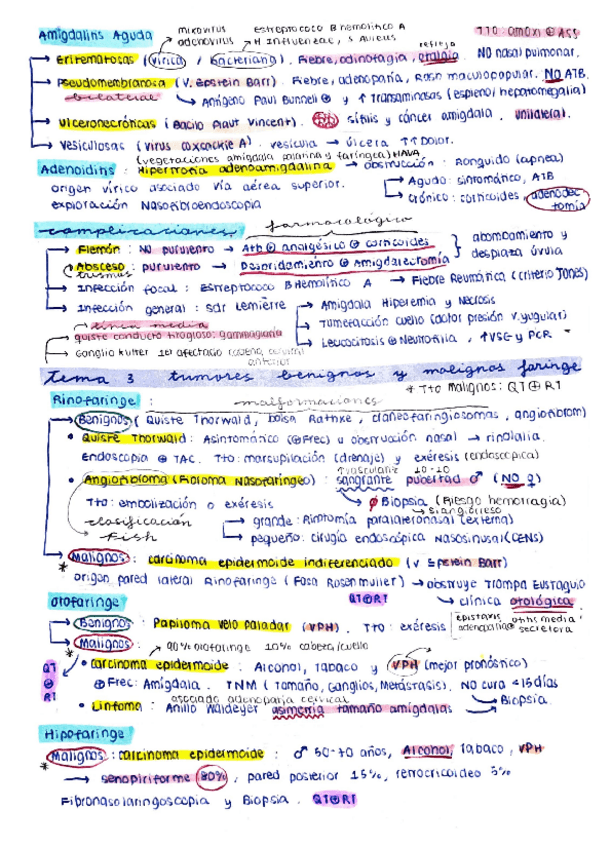 mixovirus Estreptococo B hemolítico A
Amigdalitis Aguda adenovirus H Influenzae, S Aureus TTO: amoxi ⊕ ASS
refleja
Eritematosas (vírica / Bacteriana). Fiebre, odinofagia, otalgia. NO nasal pulmonar.
Pseudomembranosa (V. Epstein Barr). Fiebre, adenopatía, Rash maculopapular. NO ATB.
bilateral Antígeno Paul Bunnell ⊕ y ↑ Transaminasas (esplenol hepatomegalia)
Ulceronecróticas (Bacilo Plaut Vincent). sífilis y cáncer amígdala. unilateral.
Vesiculosas (virus coxackie A). vesícula → úlcera ↑↑ Dolor.
(vegetaciones amígdala palatina y faríngea) HAVA
Adenoiditis: Hipertrofia adenoamigdalina → obstrucción. Ronquido (apnea)
origen vírico asociado vía aérea superior. Agudo: sintomático, ATB
exploración Nasofibroendoscopia Crónico: corticoides, adenoidectomía
complicaciones farmacológico
Flemón: NO purulento → Atb ⊕ analgésico ⊕ corticoides } abombamiento y
Absceso: purulento → Desbridamiento ⊕ Amigdalectomía desplaza úvula
trismus
Infección focal: Estreptococo B Hemolítico A → Fiebre Reumática (criterio JONES)
Infección general: Sdr Lemierre Amígdala Hiperemia y Necrosis
línea media Tumefacción cuello (dolor presión V. yugular)
quiste conducto tirogloso: gammagrafía Leucocitosis ⊕ Neutrofilia, ↑VSG y PCR
Ganglio Kutter 1er afectado cervical
anterior
Tema 3 tumores benignos y malignos faringe
* Tto malignos: QT ⊕ RT
Rinofaringe: malformaciones
Benignos (Quiste Thorwald, bolsa Rathke, craneofaringiosomas, angiofibrom)
• Quiste Thorwald: Asintomático (⊕Frec) u obstrucción nasal → rinolalia.
Endoscopia ⊕ TAC. Tto: marsupilación (drenaje) y exéresis (endoscópica)
↑vasculariz 10-20
• Angiofibroma (Fibroma Nasofaríngeo): sangrante pubertad ♂ (NO ♀)
Tto: embolización o exéresis Biopsia (Riesgo hemorragia)
clasificación grande: Rinotomía paralateronasal (externa)
Fish pequeño: cirugía endoscópica Nasosinusal (CENS)
* Malignos: carcinoma epidermoide indiferenciado (V Epstein Barr)
origen pared lateral Rinofaringe (Fosa Rosenmuller) → obstruye Trompa Eustaquio
QT⊕RT clínica otológica
Orofaringe epistaxis otitis media
Benignos: Papiloma velo paladar (VPH). Tto: exéresis adenopatía secretora
* Malignos: 90% orofaringe 10% cabeza/cuello
• carcinoma epidermoide: Alcohol, tabaco y VPH (mejor pronóstico)
QT ⊕ RT ⊕ Frec: Amígdala. TNM (Tamaño, Ganglios, Metástasis). NO cura <15 días
asociado adenopatía cervical
• Linfoma: Anillo Waldeyer asimetría tamaño amígdalas Biopsia.
Hipofaringe
* Malignos: carcinoma epidermoide: ♂ 50-70 años, Alcohol, Tabaco, VPH
→ senopiriforme 80%, pared posterior 15%, retrocricoideo 5%
Fibronasolaringoscopia y Biopsia. QT⊕RT